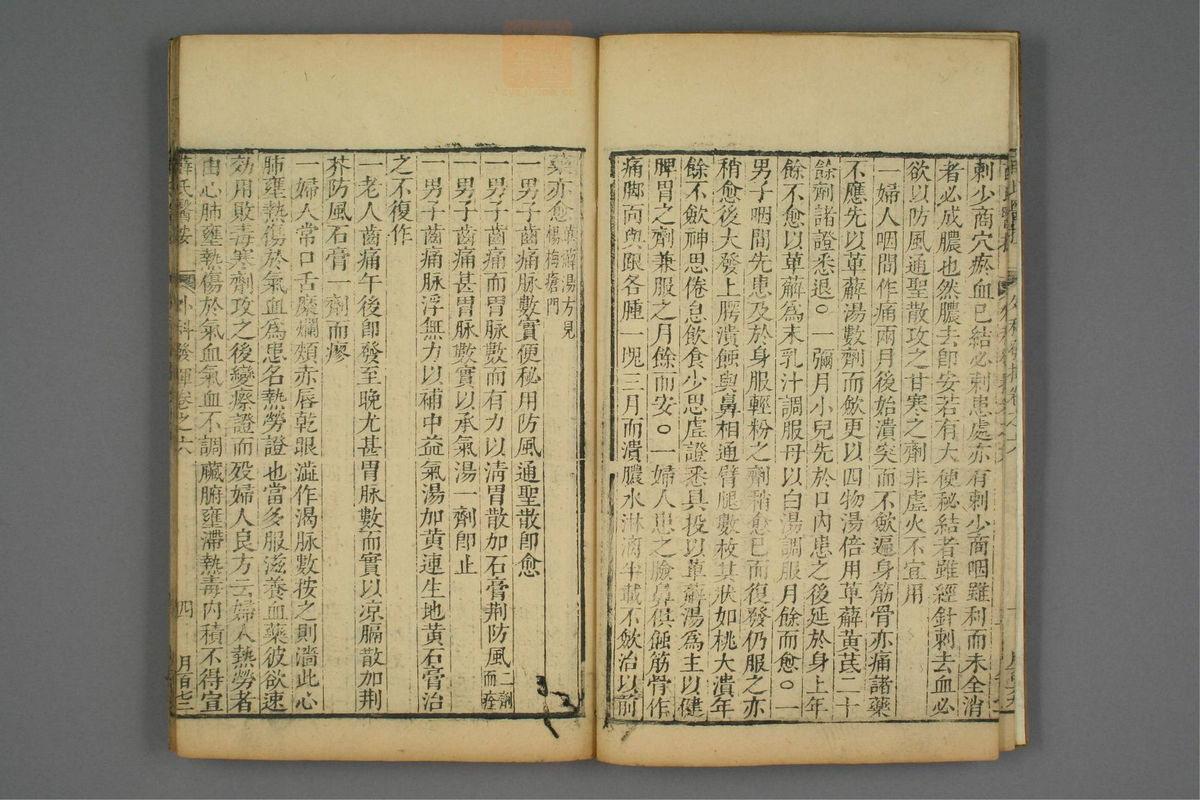 刺少商穴瘀血已結必刺患處亦有刺少商咽雖利而未全消
者必成膿也然膿去即安若有大便秘結者雖經針刺去血必
欲以防風通聖散攻之甘寒之劑非虛火不宜用
一婦人咽間作痛兩月後始潰突而不斂遍身筋骨亦痛諸藥
不應先以萆薢湯數劑而斂更以四物湯倍用萆薢黃芪二十
餘劑諸證悉退○一彌月小兒先於口內患之後延於身上年
餘不愈以萆薢為末乳汁調服母以白湯調服月餘而愈○一
男子咽間先患及於身服輕粉之劑稍愈已而復發仍服之亦
稍愈後大發上腭潰蝕與鼻相通臂腿數枚其狀如桃大潰年
餘不斂神思倦怠飲食少思虛證悉具投以萆薢湯為主以健
脾胃之劑兼服之月餘而安○一婦人患之臉鼻俱蝕筋骨作
痛脚面與跟各腫一塊三月而潰膿水淋漓半載不斂治以前
藥亦愈萆薢湯方見楊梅瘡門
一男子齒痛脉數實便秘用防風通聖散即愈
一男子齒痛而胃脉數而有力以清胃散加石膏荆防風二劑而痊
一男子齒痛甚胃脉數實以承氣湯一劑即止
一男子齒痛脉浮無力以補中益氣湯加黃連生地黃石膏治
之不復作
一老人齒痛午後即發至晚尤甚胃脉數而實以凉膈散加荆
芥防風石膏一劑而瘳
一婦人常口舌糜爛頰赤唇乾眼澁作渴脉數按之則濇此心
肺壅熱傷於氣血為患名熱勞證也當多服滋養血藥彼欲速
効用敗毒寒劑攻之後變瘵證而歿婦人良方云婦人熱勞者
由心肺壅熱傷於氣血氣血不調臟腑壅滯熱毒內積不得宣
薛氏醫按 外科發揮卷之六 四